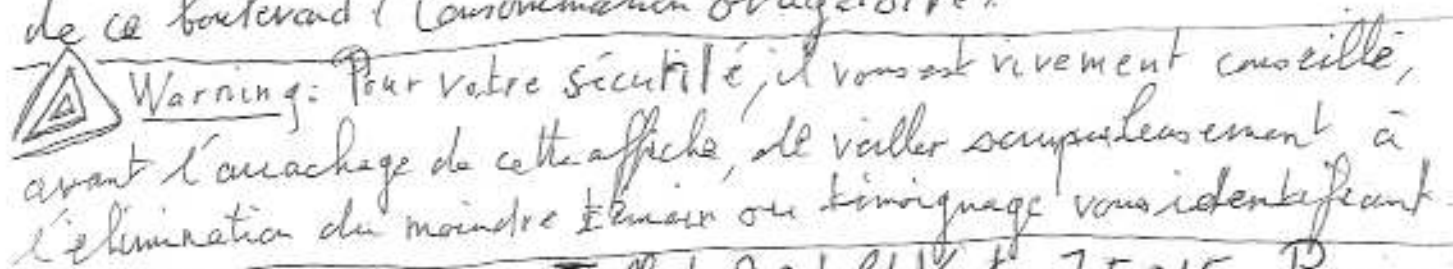 de ce boulevard (Consommation
Warning: Pour votre sécurité, il vous est vivement conseillé,
avant l'arrachage de cette affiche, de veiller scrupuleusement à
l'élimination du moindre témoin ou témoignage vous identifiant